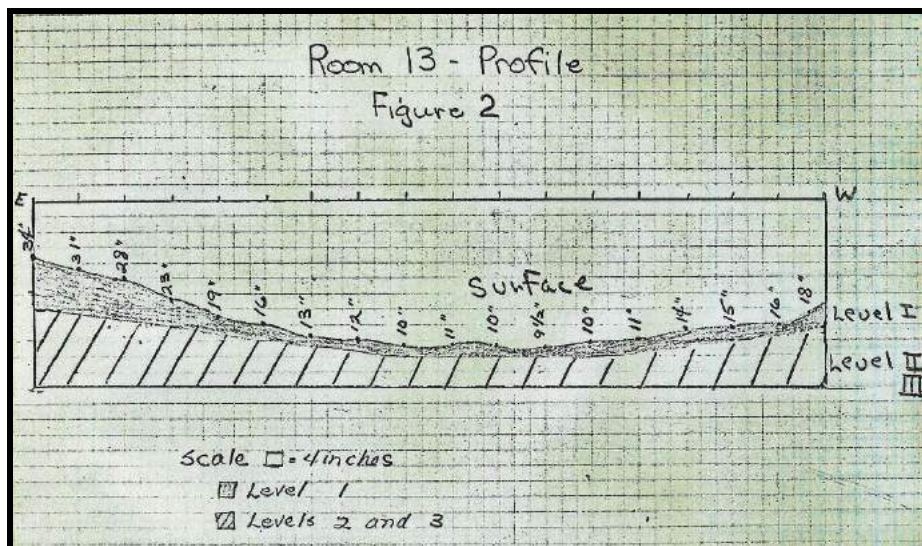 Room 13 - Profile
Figure 2
E
W
34"
31"
28"
23"
19"
16"
13"
12"
10"
11"
10"
9 1/2"
10"
11"
14"
15"
16"
18"
Surface
Level I
Level II
III
Scale □ = 4 inches
Level 1
Levels 2 and 3